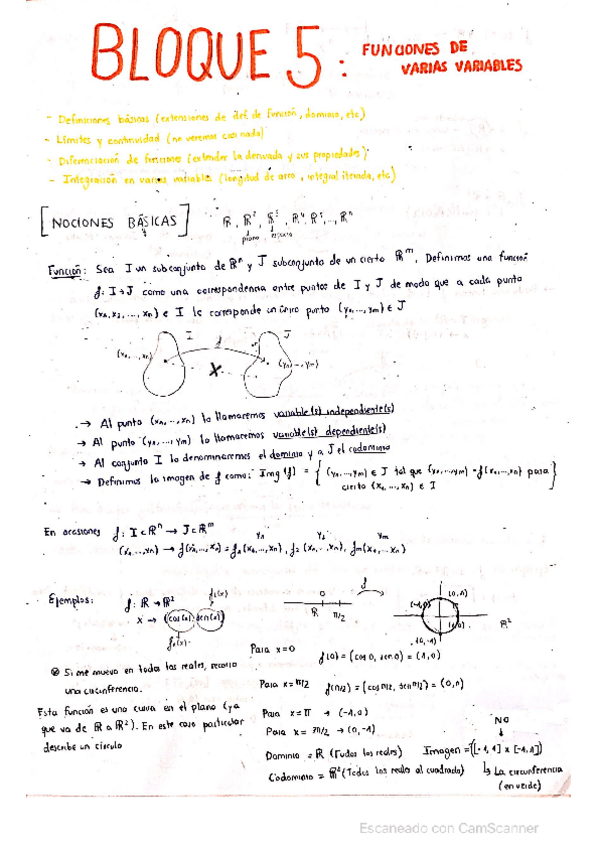 BLOQUE 5: FUNCIONES DE VARIAS VARIABLES
- Definiciones básicas (extensiones de def. de función, dominio, etc)
- Límites y continuidad (no veremos casi nada)
- Diferenciación de funciones (extender la derivada y sus propiedades)
- Integración en varias variables (longitud de arco, integral iterada, etc)
[NOCIONES BÁSICAS] ℝ, ℝ², ℝ³, ℝ⁴, ℝ⁵, ..., ℝⁿ
plano espacio
Función: Sea I un subconjunto de ℝⁿ y J subconjunto de un cierto ℝᵐ. Definimos una función
f: I→J como una correspondencia entre puntos de I y J de modo que a cada punto
(x₁, x₂, ..., xₙ) ∈ I le corresponde un único punto (y₁, ..., yₘ) ∈ J
I f J
(x₁, ..., xₙ) X (y₁, ..., yₘ)
→ Al punto (x₁, ..., xₙ) lo llamaremos variable(s) independiente(s)
→ Al punto (y₁, ..., yₘ) lo llamaremos variable(s) dependiente(s)
→ Al conjunto I lo denominaremos el dominio y a J el codominio
→ Definimos la imagen de f como: Img (f) = { (y₁, ..., yₘ) ∈ J tal que (y₁, ..., yₘ) = f(x₁, ..., xₙ) para
cierto (x₁, ..., xₙ) ∈ I }
En ocasiones f: I⊂ℝⁿ → J⊂ℝᵐ y₁ y₂ yₘ
(x₁, ..., xₙ) → f(x₁, ..., xₙ) = f₁(x₁, ..., xₙ), f₂(x₁, ..., xₙ), fₘ(x₁, ..., xₙ)
Ejemplos: f: ℝ → ℝ² f₂(x)
x → (cos(x), sen(x))
f₁(x)
0 f
ℝ π/2
(0,1)
(-1,0) (1,0) ℝ²
(0,-1)
⊛ Si me muevo en todos los reales, recorro
una circunferencia.
Esta función es una curva en el plano (ya
que va de ℝ a ℝ²). En este caso particular
describe un círculo
Para x=0 f(0) = (cos 0, sen 0) = (1,0)
Para x=π/2 f(π/2) = (cos π/2, sen π/2) = (0,1)
Para x=π → (-1,0)
Para x= 3π/2 → (0,-1)
NO
Dominio = ℝ (Todos los reales) Imagen = {[-1,1] x [-1,1]}
Codominio = ℝ² (Todos los reales al cuadrado) ↳ La circunferencia
(en verde)
Escaneado con CamScanner